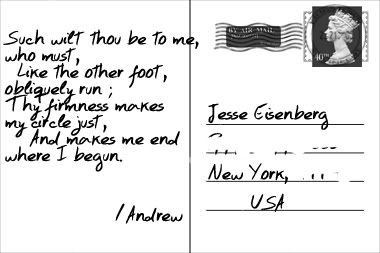 Such wilt thou be to me,
who must,
Like the other foot,
obliquely run ;
Thy firmness makes
my circle just,
And makes me end
where I begun.
/Andrew
BY AIR MAIL
40TH
Jesse Eisenberg
New York,
USA